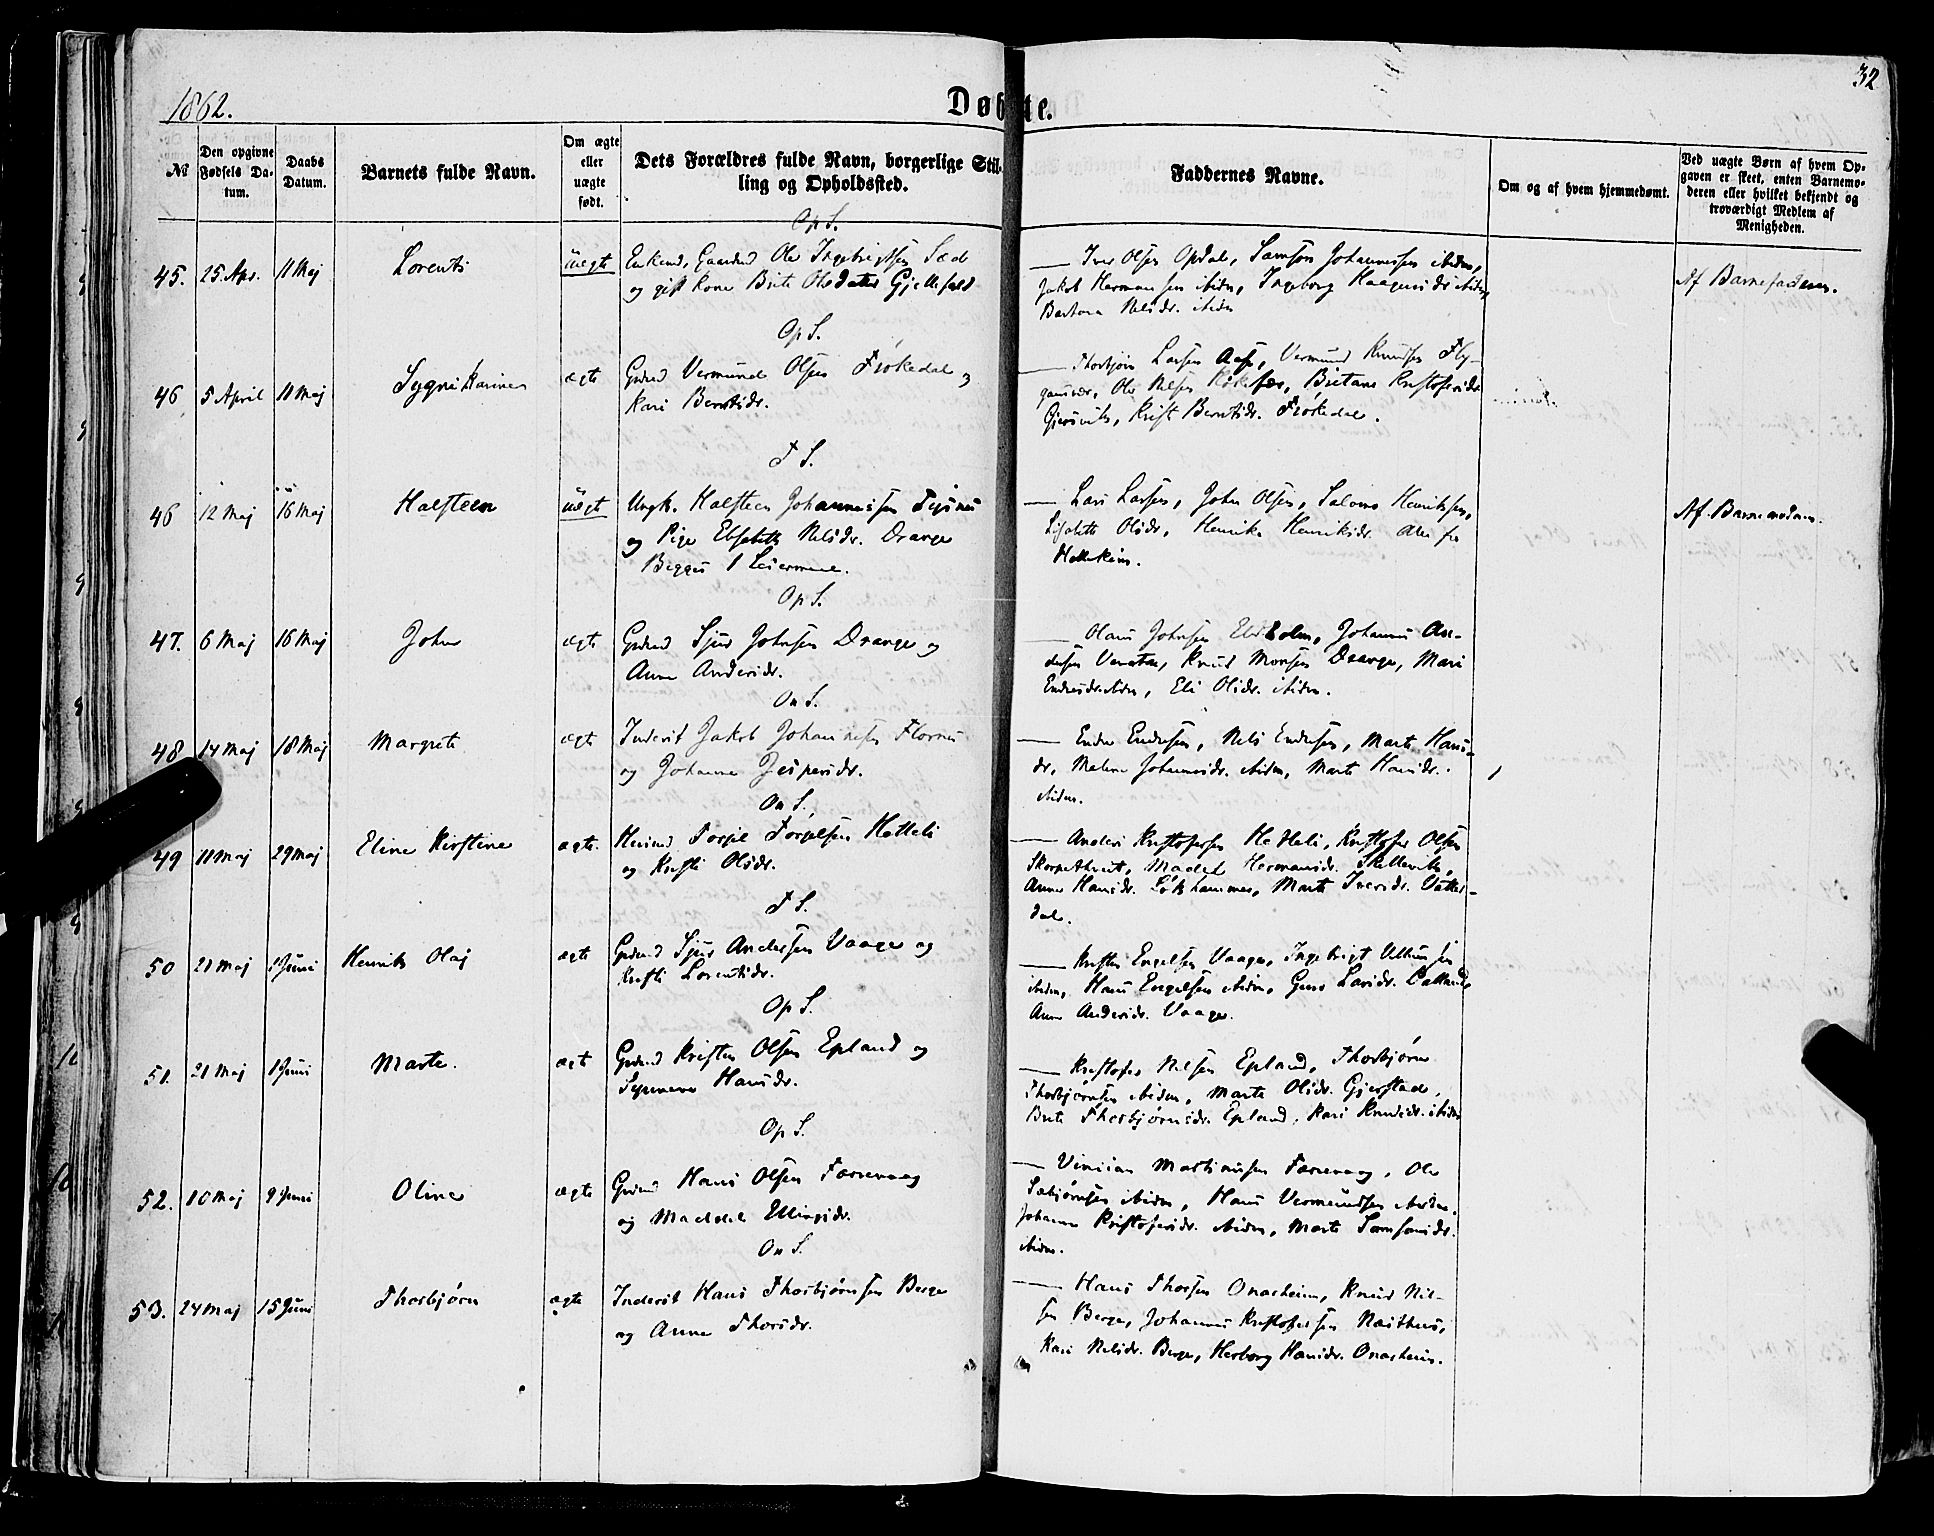 1862.
Døbte.
32
№
Den opgivne Fødsels Datum.
Daabs Datum.
Barnets fulde Navn.
Om ægte eller uægte født.
Dets Forældres fulde Navn, borgerlige Stilling og Opholdssted.
Faddernes Navne.
Om og af hvem hjemmedøbt.
Ved uægte Børn af hvem Opgaven er skeet, enten Barnemoderen eller hvilket bekjendt og troværdigt Medlem af Menigheden.
Op S.
45. 25. Apr. 11 Maj Lorents uægt Enkemd, Gaardmd Ole Ingebrigtsen
og gift Kone Brite Olsdatter Gjellefald
Iver Olsen Opdal, Samson Johannessen ibidm,
Jakob Hermansen ibidm, Ingeborg Haagensdr. ibidm,
Barbora Nelsdr. ibidm
Af Barnefaderen.
Op S.
46 5 April 11 Maj Sygni Karine ægte Grdmd Vermund Olsen Frøkedal og
Kari Berntsdr.
Thorbjørn Larsen Aase, Vermund Knudsen Fly-
Ole Nelsen Britane Kristofersdr.
Gjersvik, Krist Berntsdr. Frøkedal.
T S.
46 12 Maj 16 Maj Halsteen uægt Ungk. Halsteen Johannessen Tysnes
og Pige Elsebeth Nelsdr. Drange
Begges 1 Leiermaal.
Lars Larsen, John Olsen, Salomo Henriksen,
Lisabeth Olsdr, Henrike Henriksdr. alle fra
Af Barnemoderen.
Op S.
47. 6 Maj 16 Maj John ægte Grdmd Sjur Johnsen Drange og
Anna Andersdr.
Hans Johnsen Johannes An-
dersen Knud Monsen Drange, Mari
Endresdr. ibidm, Eli Olsdr. ibidm.
On S.
48 14 Maj 18 Maj Margrete ægte Inderst Jakob Johannessen Flornes
og Johanna Jespersdr.
Endre Endresen, Nels Endresen, Marte Hans-
dr, Malene Johannesdr. ibidm, Marte Hansdr.
ibidm.
On S.
49 11 Maj 29 Maj Eline Kirstine ægte. Husmd Torgil Torgilsen Hetleli
og Kristi Olsdr.
Anders Kristofersen Hetleli, Kristofer Olsen
Madel Hermansdr. Skillevik,
Anna Hansdr. Løkhammer, Marte Iversdr. Vatte-
dal.
T S.
50 21 Maj 1 Juni Henrik Olaj ægte Grdmd Sjur Andersen Vaage og
Kristi Lorentsdr.
Kristen Engelsen Vaage, Ingebrigt
ibidm, Hans Engelsen ibidm, Guro Larsdr.
Anna Andersdr. Vaage.
Op S.
51. 21 Maj 1 Juni Marte. ægt Grdmd Kristen Olsen Epland og
Hansdr.
Kristofer Nelsen Epland, Thorbjørn
Thorbjørnsen ibidm, Marte Olsdr. Gjerstad,
Brite Thorbjørnsdr. Epland, Kari Knudsdr. ibidm
Op S.
52. 10 Maj 9 Juni Oline ægte Grdmd Hans Olsen Færevaag
og Maddel Ellingsdr.
Vincian Martinusen Færevaag, Ole
Sæbjørnsen ibidm, Hans Vermundsen ibidm.
Johanna Kristofersdr. ibidm, Marte Samsonsdr.
ibidm.
On S.
53. 24 Maj 15 Juni Thorbjørn ægte Inderst Hans Thorbjørnsen Berge
og Anna Thorsdr.
Hans Thorsen Onarheim, Knud Nil-
sen Berge, Johannes Kristofersen
Kari Nelsdr. Berge, Herborg Hansdr. Onarheim.